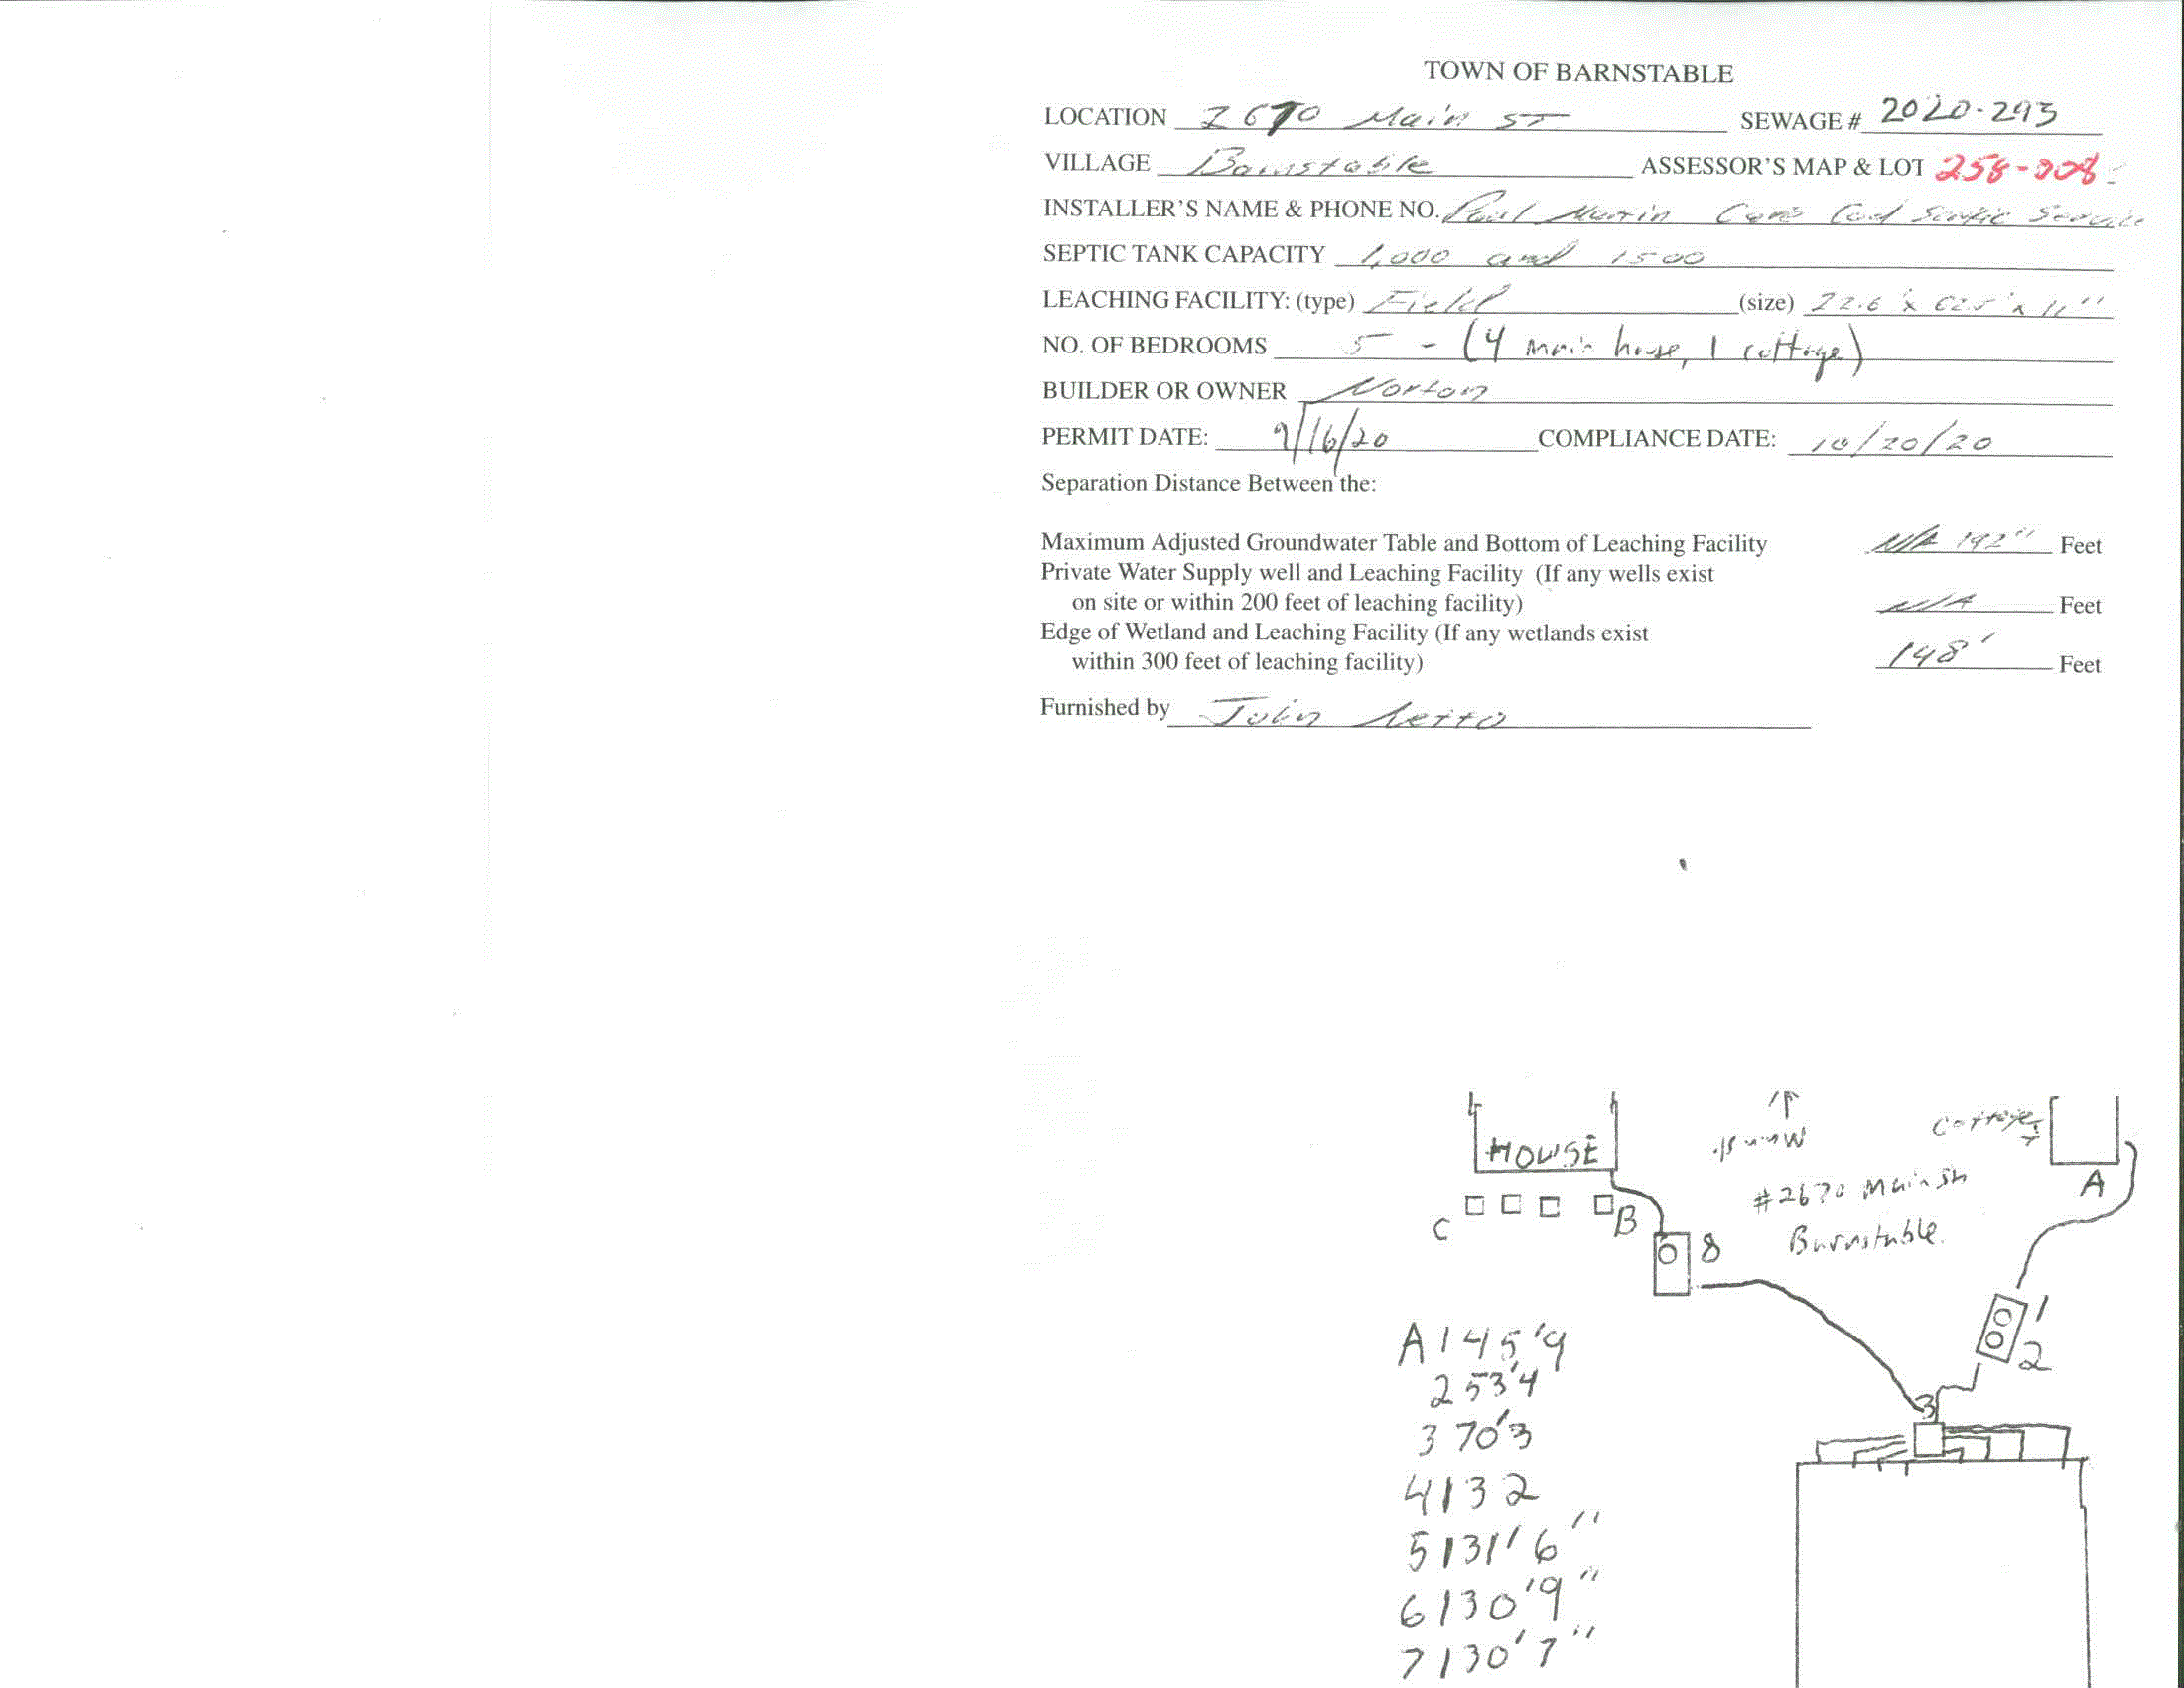 TOWN OF BARNSTABLE
LOCATION 2670 Main ST SEWAGE # 2020-293
VILLAGE Barnstable ASSESSOR'S MAP & LOT 258-008
INSTALLER'S NAME & PHONE NO. Paul Martin Cape Cod Septic Service
SEPTIC TANK CAPACITY 1,000 and 1500
LEACHING FACILITY: (type) Field (size) 22.6' x 62.5' x 11"
NO. OF BEDROOMS 5 - (4 main house, 1 cottage)
BUILDER OR OWNER Norton
PERMIT DATE: 9/16/20 COMPLIANCE DATE: 10/20/20
Separation Distance Between the:
Maximum Adjusted Groundwater Table and Bottom of Leaching Facility N/A 192" Feet
Private Water Supply well and Leaching Facility (If any wells exist
on site or within 200 feet of leaching facility) N/A Feet
Edge of Wetland and Leaching Facility (If any wetlands exist
within 300 feet of leaching facility) 148' Feet
Furnished by John
Cottage
HOUSE
Main St.
A
#2670 Main St
C B
8 Barnstable.
1
A 1 45'9
2
2 53'4
3
3 70'3
4 132
5 131'6"
6 130'9"
7 130'7"